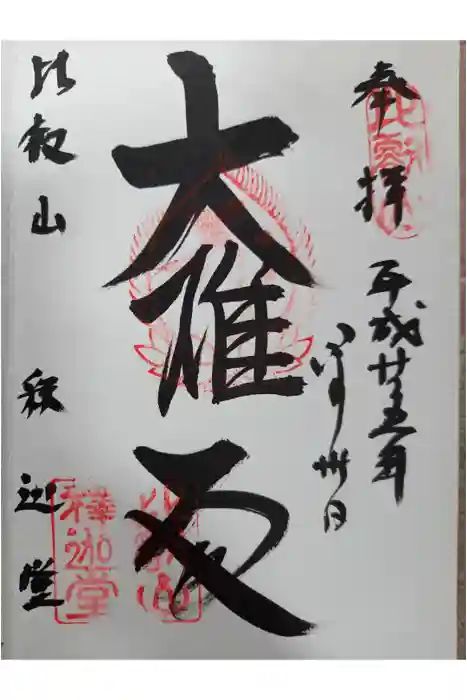 奉拝
平成廿五年
八月卅日
大雄殿
比叡山 釈迦堂
比叡山
釋迦堂